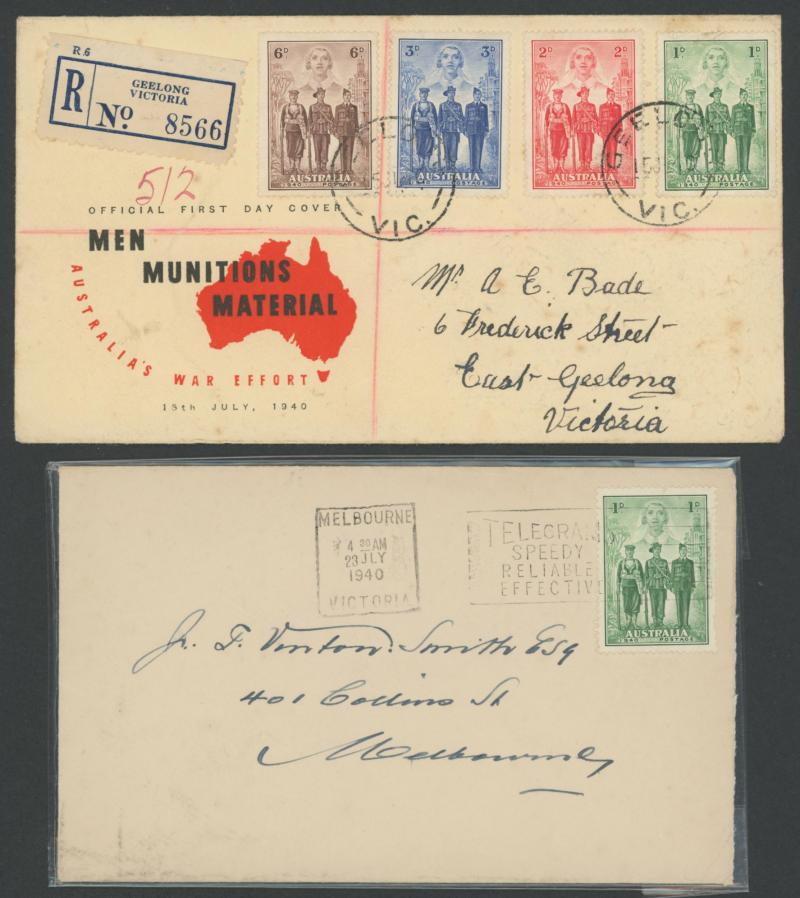 R.6
R
GEELONG
VICTORIA
No 8566
512
6D 6D
AUSTRALIA
1940 POSTAGE
3D 3D
AUSTRALIA
1940 POSTAGE
2D 2D
AUSTRALIA
1940 POSTAGE
1D 1D
AUSTRALIA
1940 POSTAGE
GEELONG
VIC.
GEELONG
VIC.
OFFICIAL FIRST DAY COVER
MEN
MUNITIONS
MATERIAL
AUSTRALIA'S WAR EFFORT
15th JULY, 1940
Mr. A E. Bade
6 Frederick Street
East Geelong
Victoria
MELBOURNE
4 30 AM
23 JLY
1940
VICTORIA
TELEGRAMS
SPEEDY
RELIABLE
EFFECTIVE
1D 1D
AUSTRALIA
1940 POSTAGE
J. F. Vinton Smith Esq
401 Collins St
Melbourne